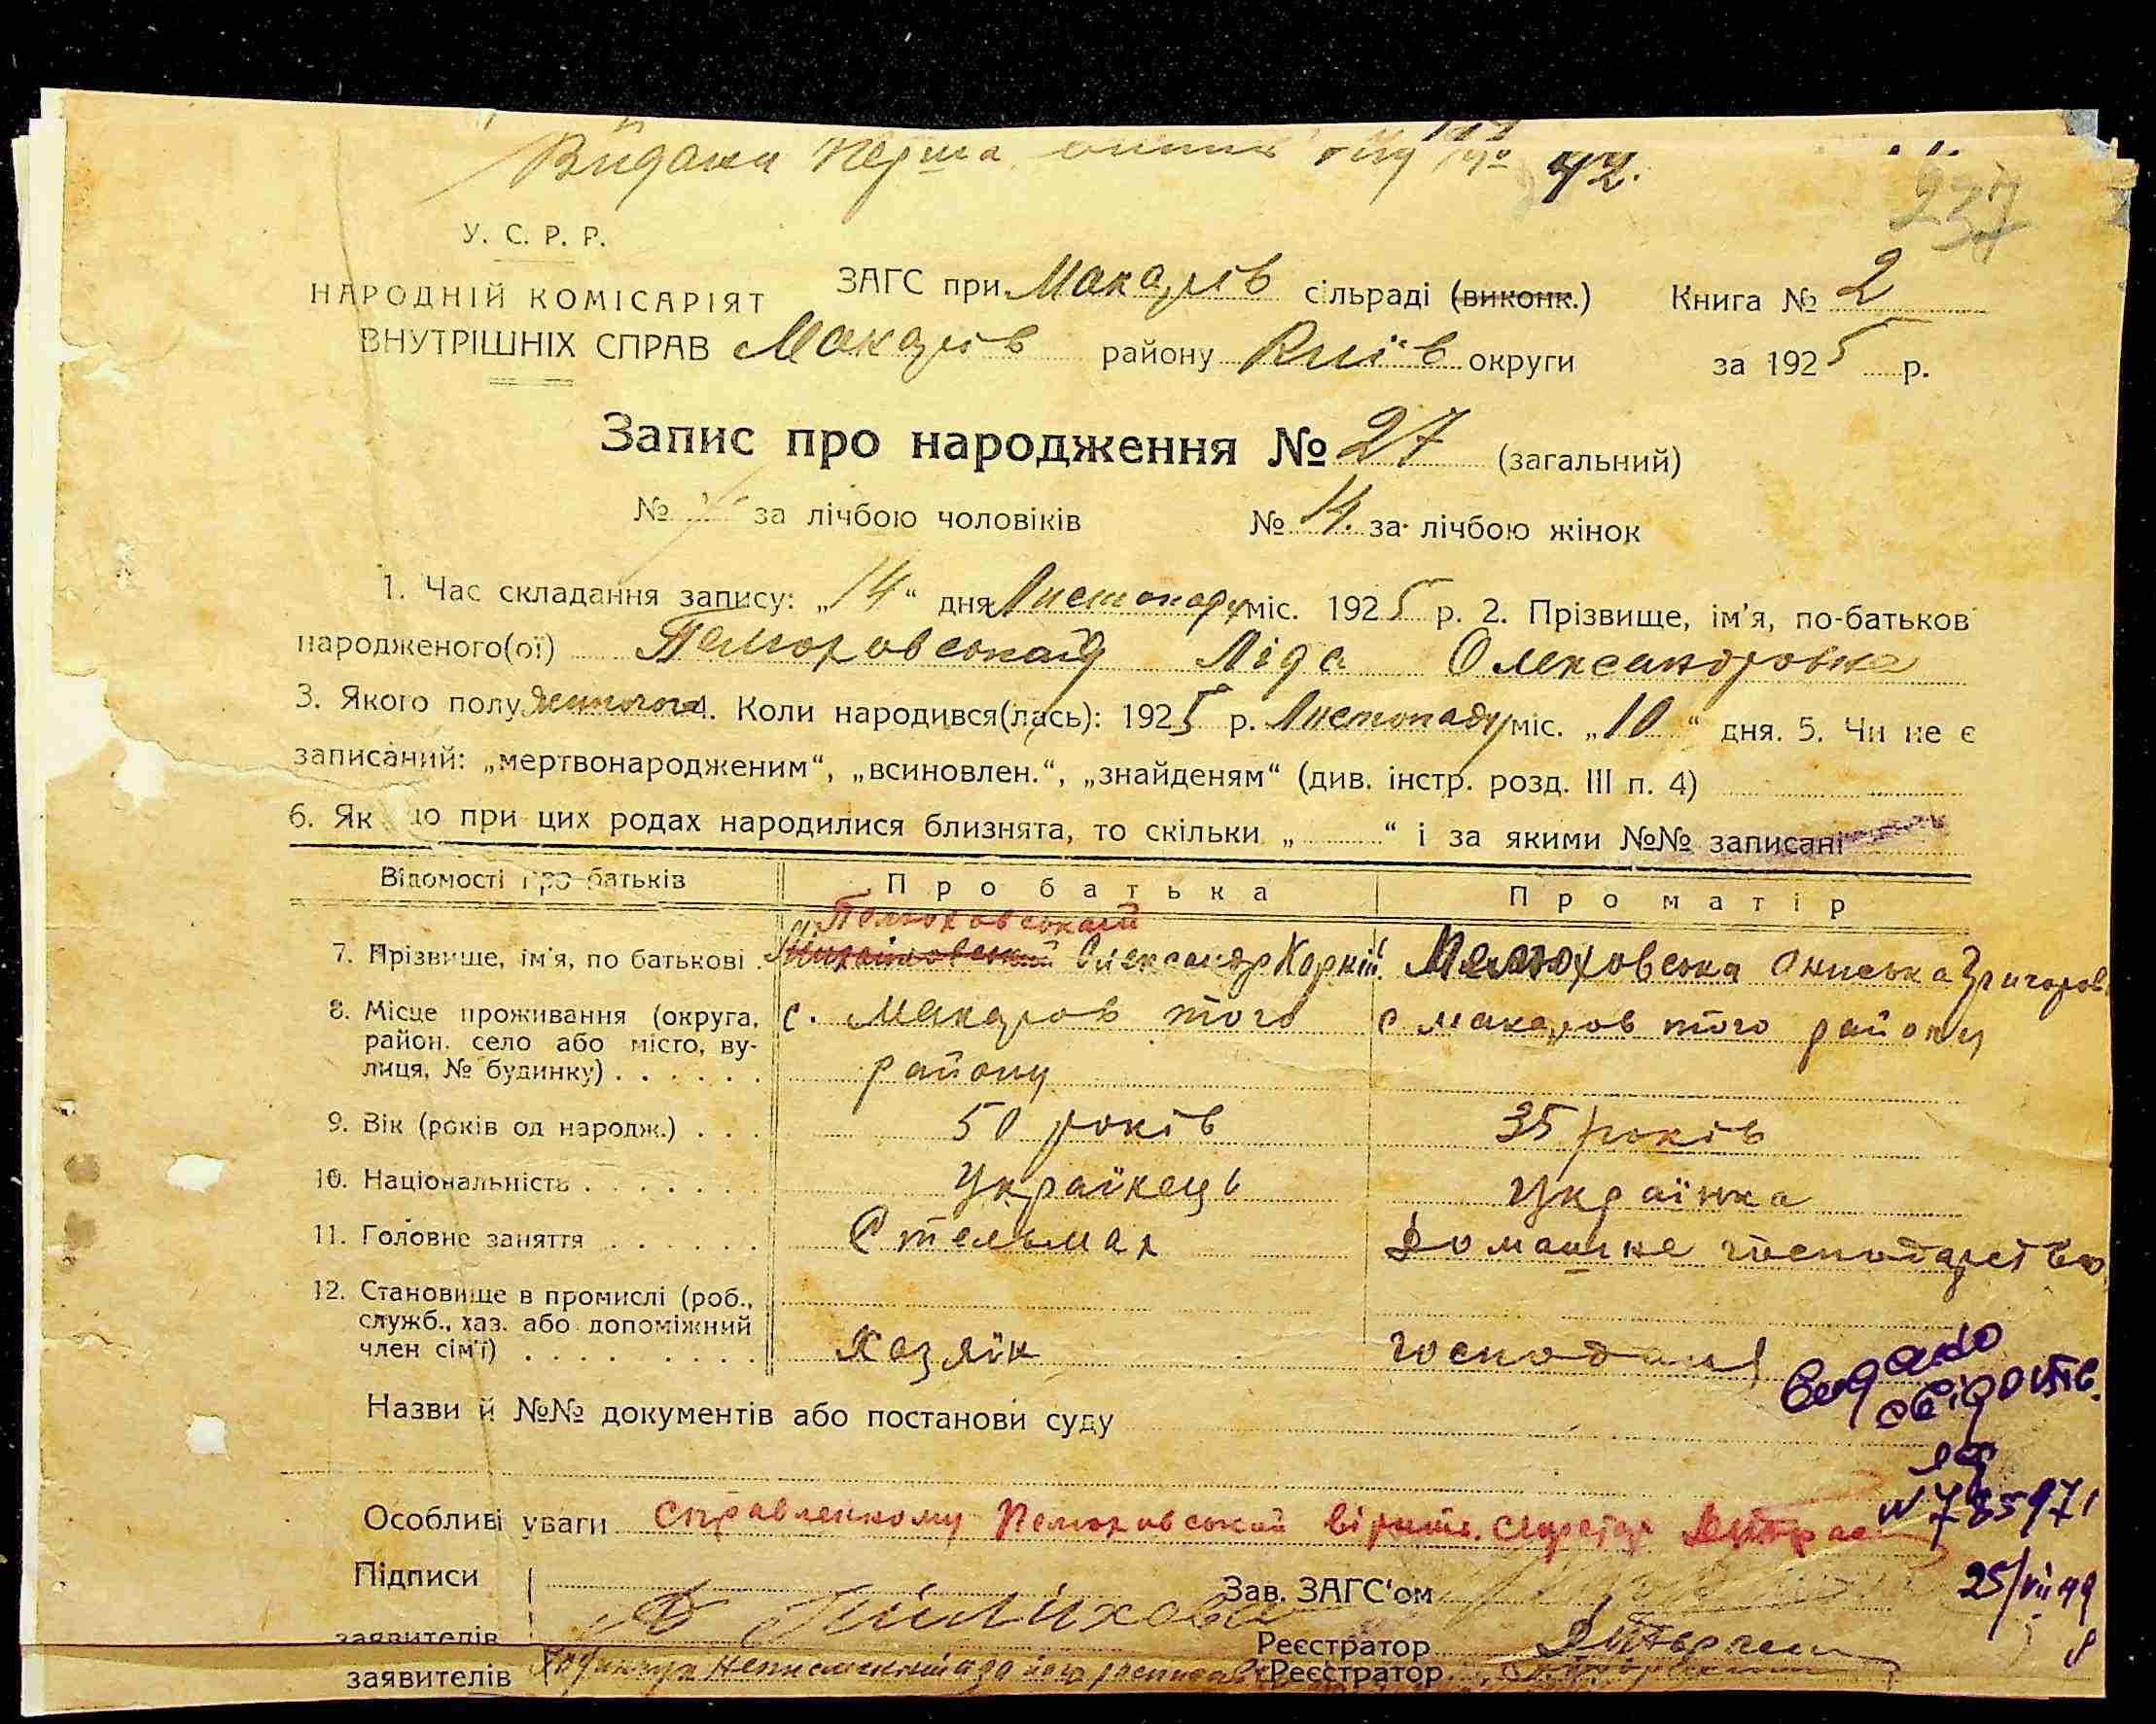 Видана перша
42.
237
У. С. Р. Р.
НАРОДНІЙ КОМІСАРІЯТ
ВНУТРІШНІХ СПРАВ
ЗАГС при Макарів сільраді (виконк.) Книга № 2
Макарів району Київ округи за 1925 р.
Запис про народження № 27 (загальний)
№ за лічбою чоловіків № 14. за лічбою жінок
1. Час складання запису: „14“ дня Листопаду міс. 1925 р. 2. Прізвище, ім'я, по-батьков
народженого(ої) Ліда Олександровна
3. Якого полу жиночого 4. Коли народився(лась): 1925 р. Листопаду міс. „10“ дня. 5. Чи не є
записаний: „мертвонародженим“, „всиновлен.“, „знайденям“ (див. інстр. розд. III п. 4)
6. Як що при цих родах народилися близнята, то скільки „ “ і за якими №№ записані
Відомості про батьків Про батька Про матір
Пелюховський
7. Прізвище, ім'я, по батькові Михайловський Олександр Корній. Пелюховська Ониська Григоров
8. Місце проживання (округа, с. Макаров того с Макаров того району
район. село або місто, ву-
лиця, № будинку) району
9. Вік (років од народж.) 50 років 35 років
10. Національність Українець Українка
11. Головне заняття Стельмах Домашне господарство
12. Становище в промислі (роб.,
служб., хаз. або допоміжний
член сім'ї) Хазяїн господиня
Видано
свідоцтв.
Назви й №№ документів або постанови суду
ЯФ
№ 785971
Особливі уваги Справленному Пелюховский вірить. Секретар
25/VII 49
Підписи Зав. ЗАГС'ом
заявителів Реєстратор
заявителів Реєстратор